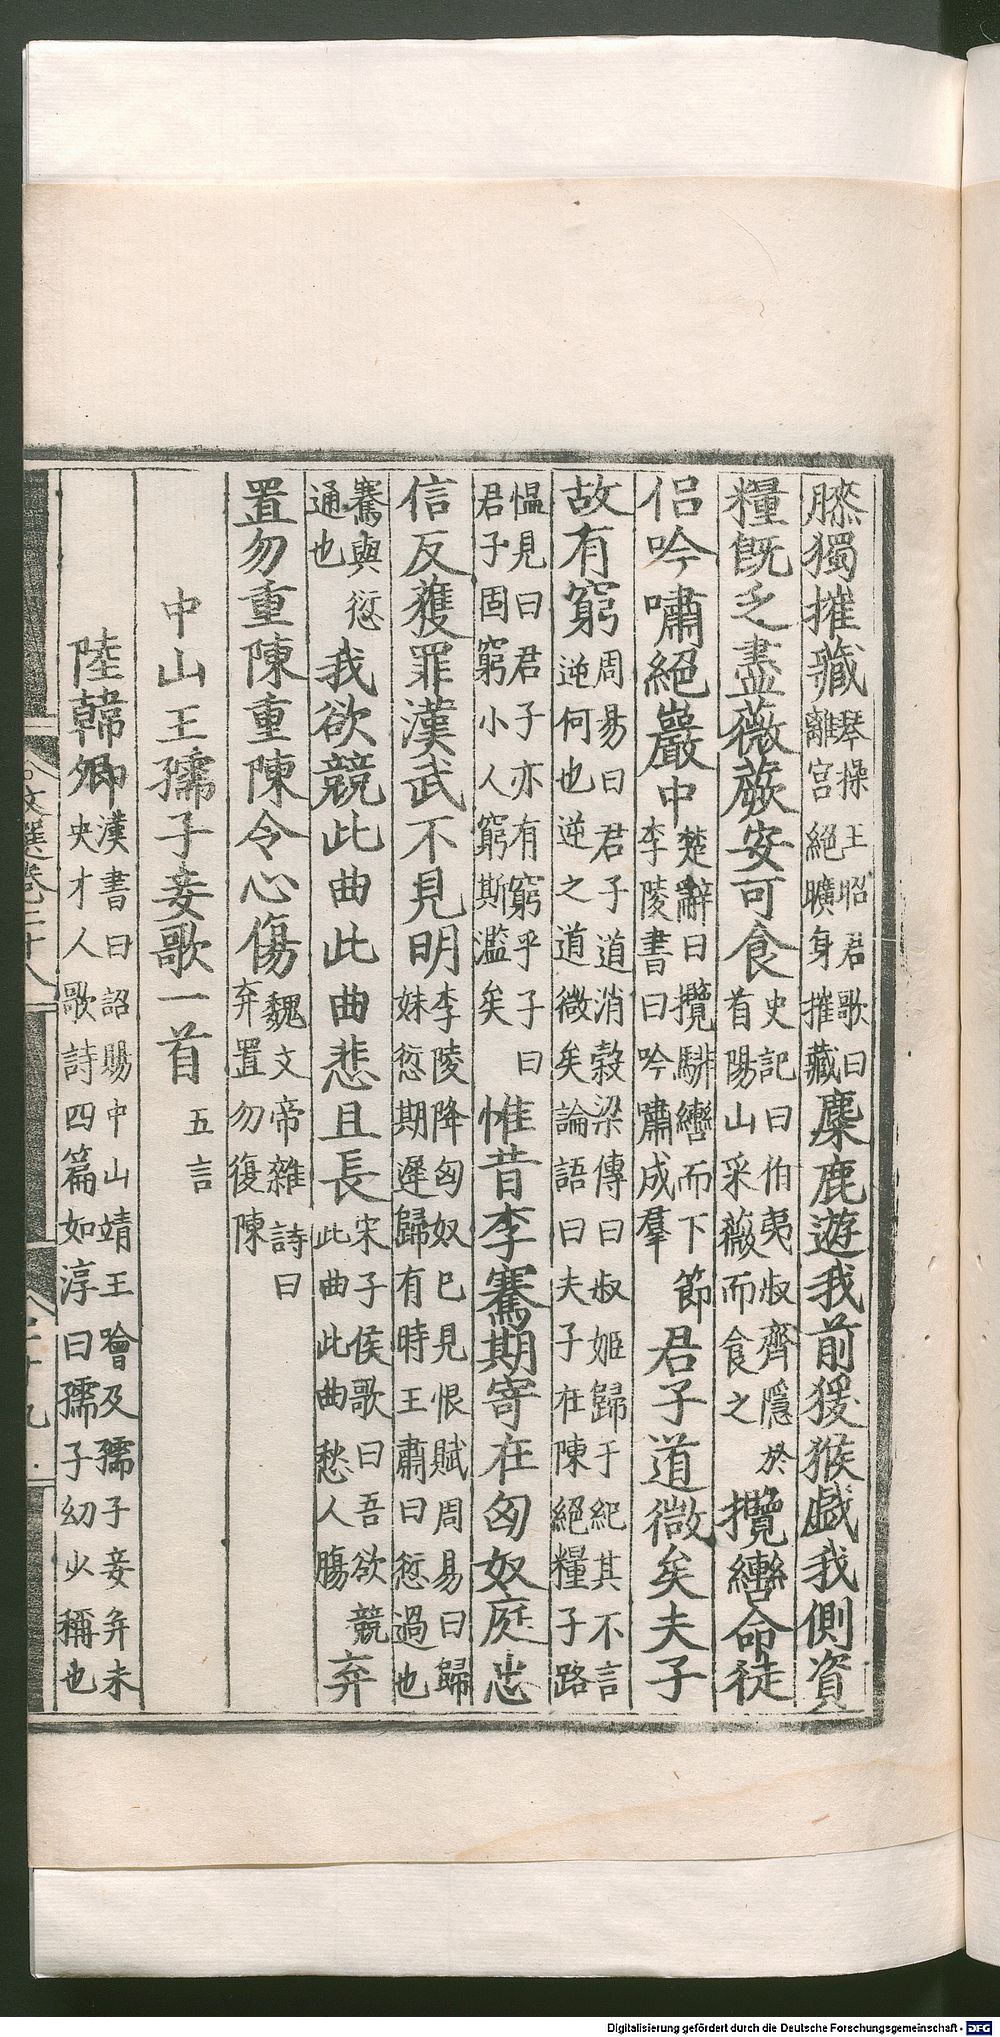 膝獨摧藏琴操王昭君歌曰離宮絕曠身摧藏麋鹿遊我前猨猴戲我側資
糧旣乏盡薇蕨安可食史記曰伯夷叔齊隱於首陽山采薇而食之攬轡命徒
侣吟嘯絕巖中楚辭曰攬騑轡而下節李陵書曰吟嘯成羣君子道微矣夫子
故有窮周易曰君子道消穀梁傳曰叔姬歸于紀其不言逆何也逆之道微矣論語曰夫子在陳絕糧子路
愠見曰君子亦有窮乎子曰君子固窮小人窮斯濫矣惟昔李騫期寄在匈奴庭忠
信反獲罪漢武不見明李陵降匈奴巳見恨賦周易曰歸妹愆期遲歸有時王肅曰愆過也
騫與愆通也我欲競此曲此曲悲且長宋子侯歌曰吾欲競此曲此曲愁人腸弃
置勿重陳重陳令心傷魏文帝雜詩曰弃置勿復陳
中山王孺子妾歌一首五言
陸韓卿漢書曰詔賜中山靖王噲及孺子妾弁未央才人歌詩四篇如淳曰孺子幼少稱也
文選卷二十八
二十九
Digitalisierung gefördert durch die Deutsche Forschungsgemeinschaft - DFG